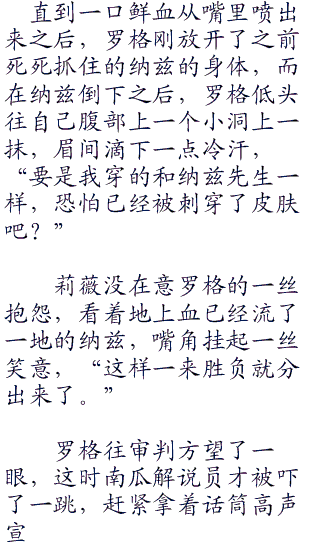 直到一口鲜血从嘴里喷出
来之后，罗格刚放开了之前
死死抓住的纳兹的身体，而
在纳兹倒下之后，罗格低头
往自己腹部上一个小洞上一
抹，眉间滴下一点冷汗，
“要是我穿的和纳兹先生一
样，恐怕已经被刺穿了皮肤
吧？”
莉薇没在意罗格的一丝
抱怨，看着地上血已经流了
一地的纳兹，嘴角挂起一丝
笑意，“这样一来胜负就分
出来了。”
罗格往审判方望了一
眼，这时南瓜解说员才被吓
了一跳，赶紧拿着话筒高声
宣